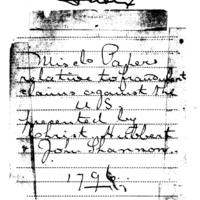 Miscls Papers
relative to fraudulent
claims against the
U.S.
presented by
Christr Hubbert
& John Shannon.
179